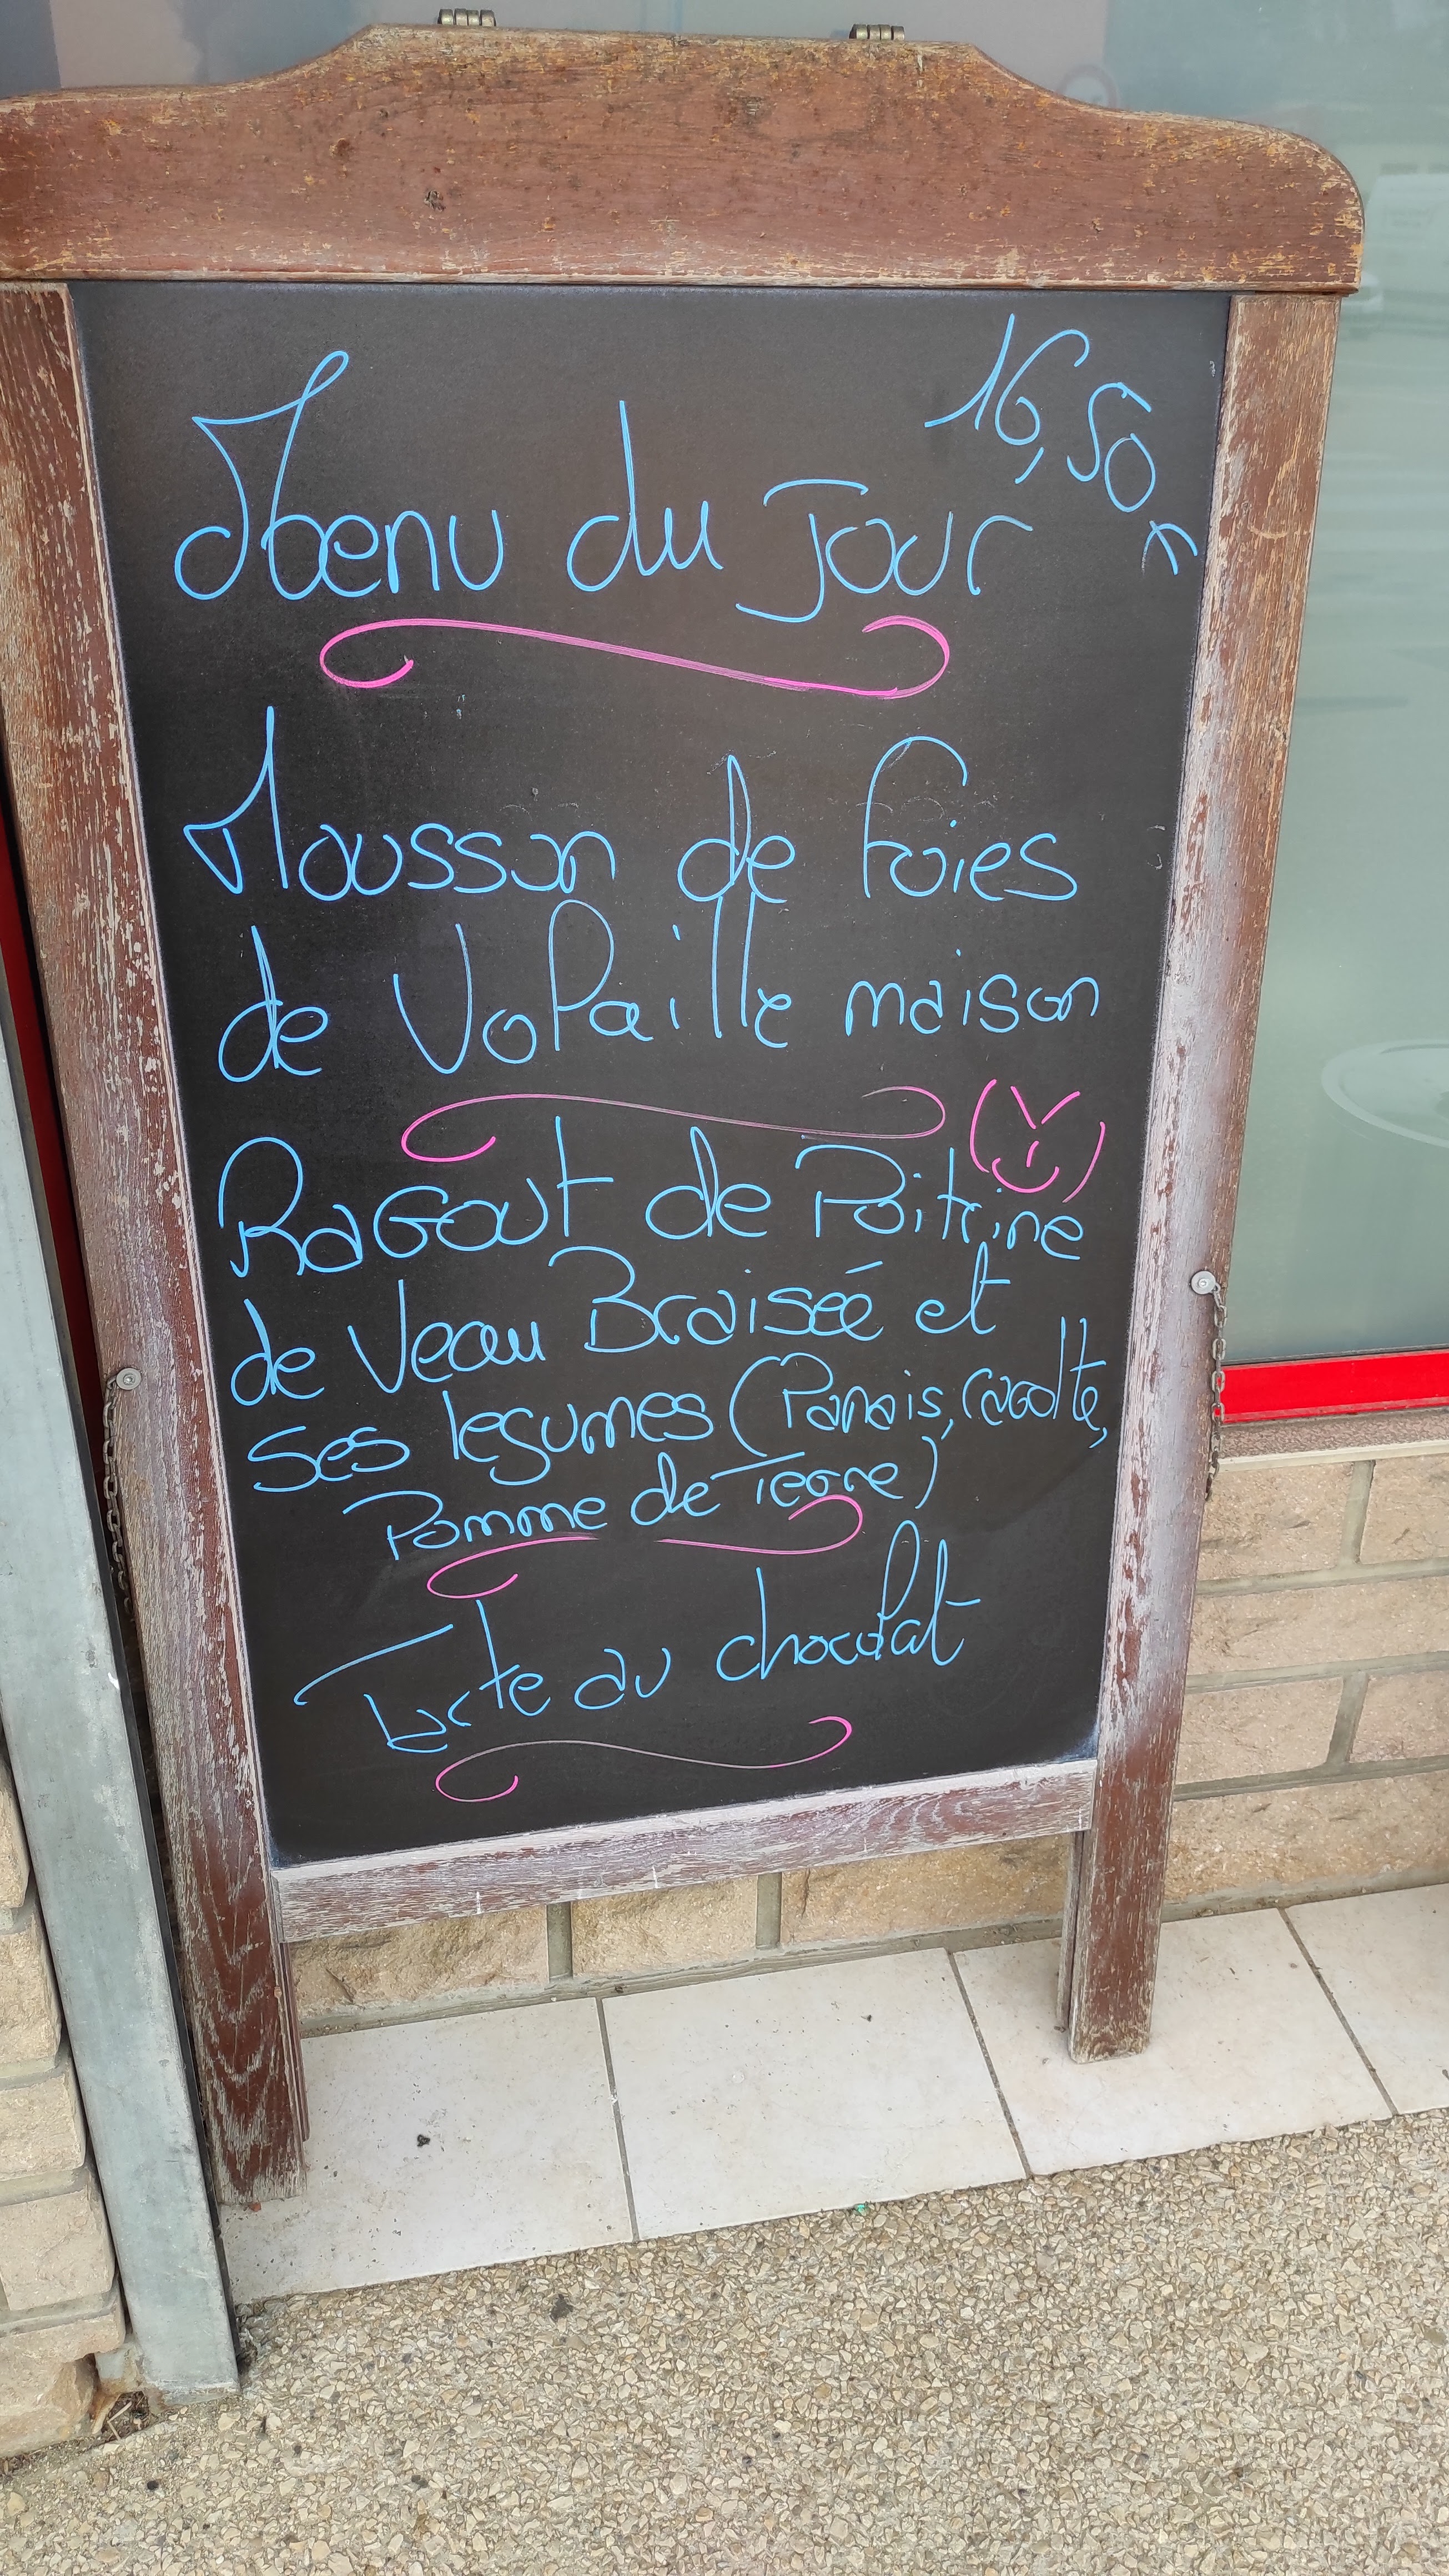 Menu du Jour 16,50€
Mousson de foies
de Volaille maison
Ragout de Poitrine
de Veau Braisée et
ses legumes (Panais, carotte,
Pomme de Terre)
Tarte au chocolat